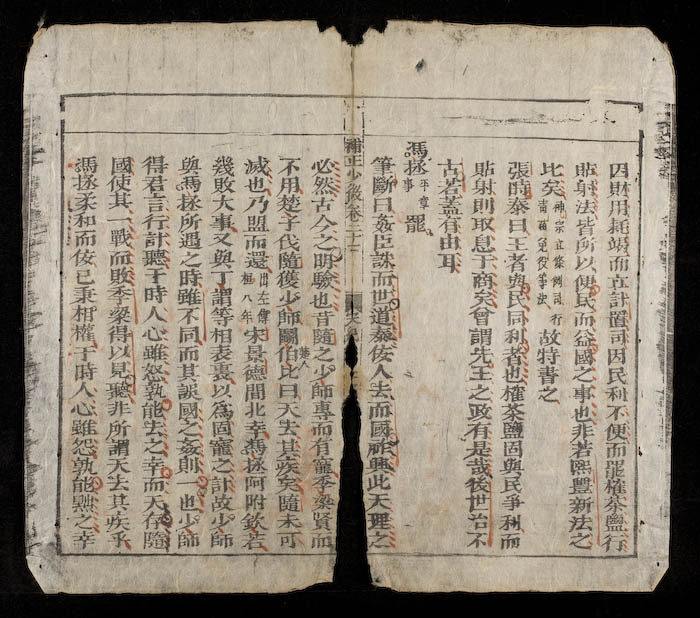 因財用耗竭而立計置司因民利不便而罷榷茶鹽行
貼射法皆所以便民而益國之事也非若熙豐新法之
比矣神宗立條例司行青苗免役等法故特書之
張時泰曰王者與民同利者也榷茶鹽固與民爭利而
貼射則取息于商矣曾謂先王之政有是哉後世治不
古若蓋有由耳
馮拯平章事罷
筆斷曰姦臣誅而世道泰佞人去而國祚興此天理之
必然古今之明驗也昔隨之少師專而有寵季梁賢而
不用楚子伐隨獲少師鬬伯比楚人曰天去其疾矣隨未可
滅也乃盟而還出左傳桓八年宋景德間北幸馮拯阿附欽若
幾敗大事又與丁謂等相表裏以為固寵之計故少師
與馮拯所遇之時雖不同而其誤國之姦則一也少師
得君言行計聽于時人心雖怒孰能去之幸而天佑隨
國使其一戰而敗季梁得以見聽非所謂天去其疾乎
馮拯柔和而佞已秉相權于時人心雖怨孰能黜之幸